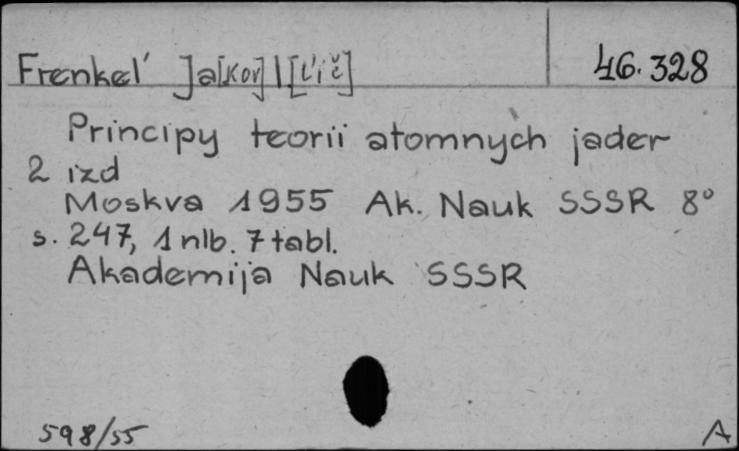 Frenkel' Ja[kov] I[l'ič]
46.328
Principy teorii atomnych jader
2 izd
Moskva 1955 Ak. Nauk SSSR 8°
s. 247, 1 nlb. 7 tabl.
Akademija Nauk SSSR
598/55
A